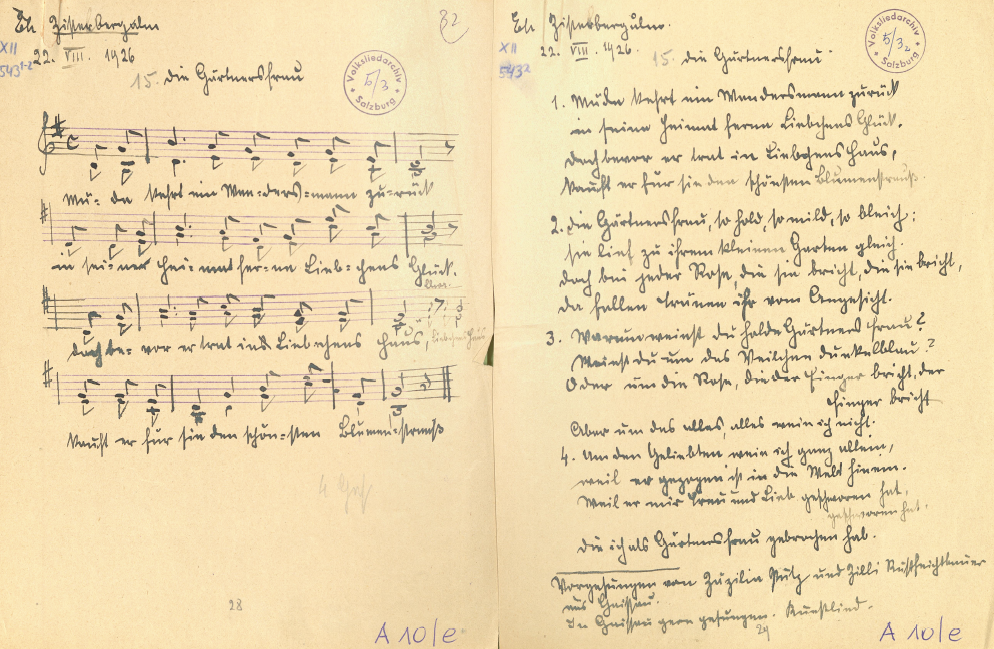 Eh. Zisterbergalm
32
XII
543 1-2
22. VIII. 1926
15. die Gärtnersfrau
Volksliedarchiv
5/3
Salzburg
Mü- de kehrt ein Wan-ders-mann zu-rück
in sei-ner Hei-mat fer-ne Lieb-chens Glück.
doch be- vor er trat ins Lieb-chens Haus, Liebchens Haus
kauft er für sie den schön-sten Blumen-strauß
28
A 10/e
Eh. Zisterbergalm.
XII
543 2
22. VIII. 1926.
15. die Gärtnersfrau.
Volksliedarchiv
5/32
Salzburg
1. Müde kehrt ein Wandersmann zurück
in seine Heimat ferne Liebchens Glück.
Doch bevor er trat in Liebchens Haus,
kauft er für sie den schönsten Blumenstrauß.
2. Die Gärtnersfrau, so hold, so mild, so bleich:
sie lief zu ihrem kleinen Garten gleich.
doch bei jeder Rose, die sie bricht, die sie bricht,
da fallen Tränen ihr vom Angesicht.
3. Warum weinst du holde Gärtnersfrau?
Weinst du um das Veilchen dunkelblau?
Oder um die Rose, die der Finger bricht, der
Finger bricht
Aber um das alles, alles wein ich nicht.
4. Um den Geliebten wein ich ganz allein,
weil er gezogen ist in die Welt hinein.
Weil er mir Treu und Lieb geschworen hat,
geschworen hat.
die ich als Gärtnersfrau gebrochen hab.
Vorgesungen von Zäzilia Putz und Zilli
aus Gnissau.
In Gnissau gern gesungen. Kunstlied.
29
A 10/e